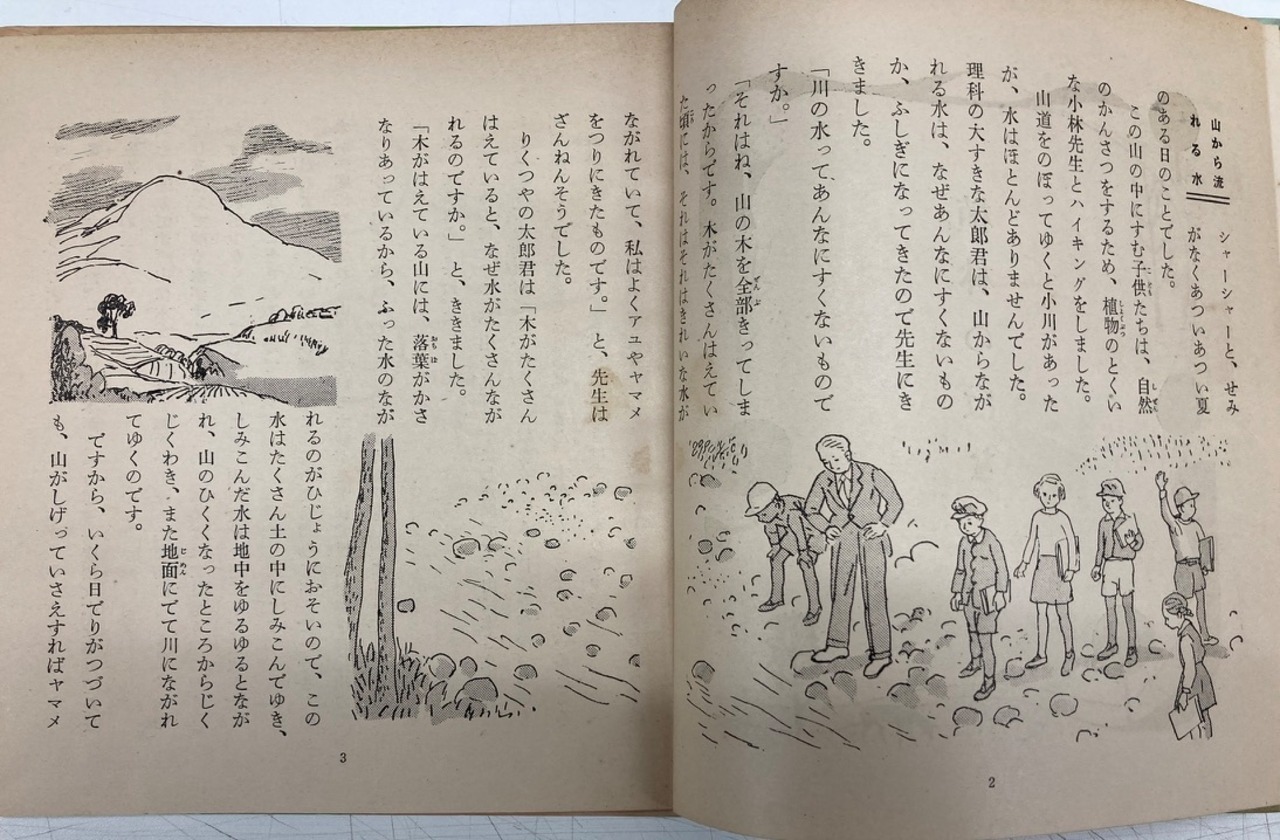 山から流
れる水
シャーシャーと、せみ
がなくあついあつい夏
のある日のことでした。
この山の中にすむ子供たちは、自然
のかんさつをするため、植物のとくい
な小林先生とハイキングをしました。
山道をのぼってゆくと小川があった
が、水はほとんどありませんでした。
理科の大すきな太郎君は、山からなが
れる水は、なぜあんなにすくないもの
か、ふしぎになってきたので先生にき
きました。
「川の水って、あんなにすくないもので
すか。」
「それはね、山の木を全部きってしま
ったからです。木がたくさんはえてい
た頃には、それはそれはきれいな水が
2
ながれていて、私はよくアユやヤマメ
をつりにきたものです。」と、先生は
ざんねんそうでした。
りくつやの太郎君は「木がたくさん
はえていると、なぜ水がたくさんなが
れるのですか。」と、ききました。
「木がはえている山には、落葉がかさ
なりあっているから、ふった水のなが
れるのがひじょうにおそいので、この
水はたくさん土の中にしみこんでゆき、
しみこんだ水は地中をゆるゆるとなが
れ、山のひくくなったところからじく
じくわき、また地面にでて川にながれ
てゆくのです。
ですから、いくら日でりがつづいて
も、山がしげっていさえすればヤマメ
3